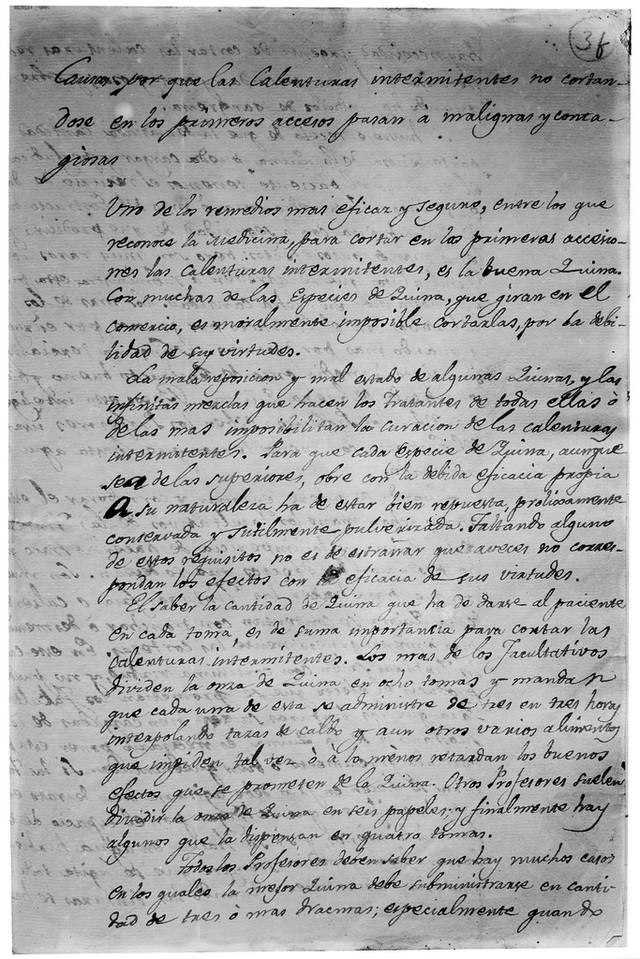 36
Causas por que las Calenturas intermitentes no cortan-
dose en los primeros accesos pasan á malignas y conta-
giosas
Uno de los remedios mas eficaz y seguro, entre los que
reconoce la Medicina, para cortar en las primeras accesio-
nes las Calenturas intermitentes, es la buena Quina.
Con muchas de las Especies de Quina, que giran en el
Comercio, es moralmente imposible cortarlas, por la debi-
lidad de sus virtudes.
La mala reposicion y mal estado de algunas Quinas, y las
infinitas mezclas que hacen los Tratantes de todas ellas ó
de las mas imposibilitan la curacion de las calenturas
intermitentes. Para que cada Especie de Quina, aunque
sea de las superiores, obre con la debida eficacia propia
á su naturaleza ha de estar bien repuesta, prolixamente
conservada y sutilmente pulverizada. Faltando alguno
de estos requisitos no es de estrañar que aveces no corres-
pondan los efectos con la eficacia de sus virtudes.
El saber la cantidad de Quina que ha de darse al paciente
en cada toma, es de suma importancia para cortar las
Calenturas intermitentes. Los mas de los Facultativos
dividen la onza de Quina en ocho tomas y mandan
que cada una de esta se administre de tres en tres horas
interpolando tazas de caldo y aun otros varios alimentos
que impiden tal vez ó á lo menos retardan los buenos
efectos que se prometen de la Quina. Otros Profesores suelen
dividir la onza de Quina en seis papeles; y finalmente hay
algunos que la dispensan en quatro tomas.
Todos los Profesores deben saber que hay muchos casos
en los quales la mejor Quina debe subministrarse en canti-
dad de tres ó mas dracmas; especialmente quando